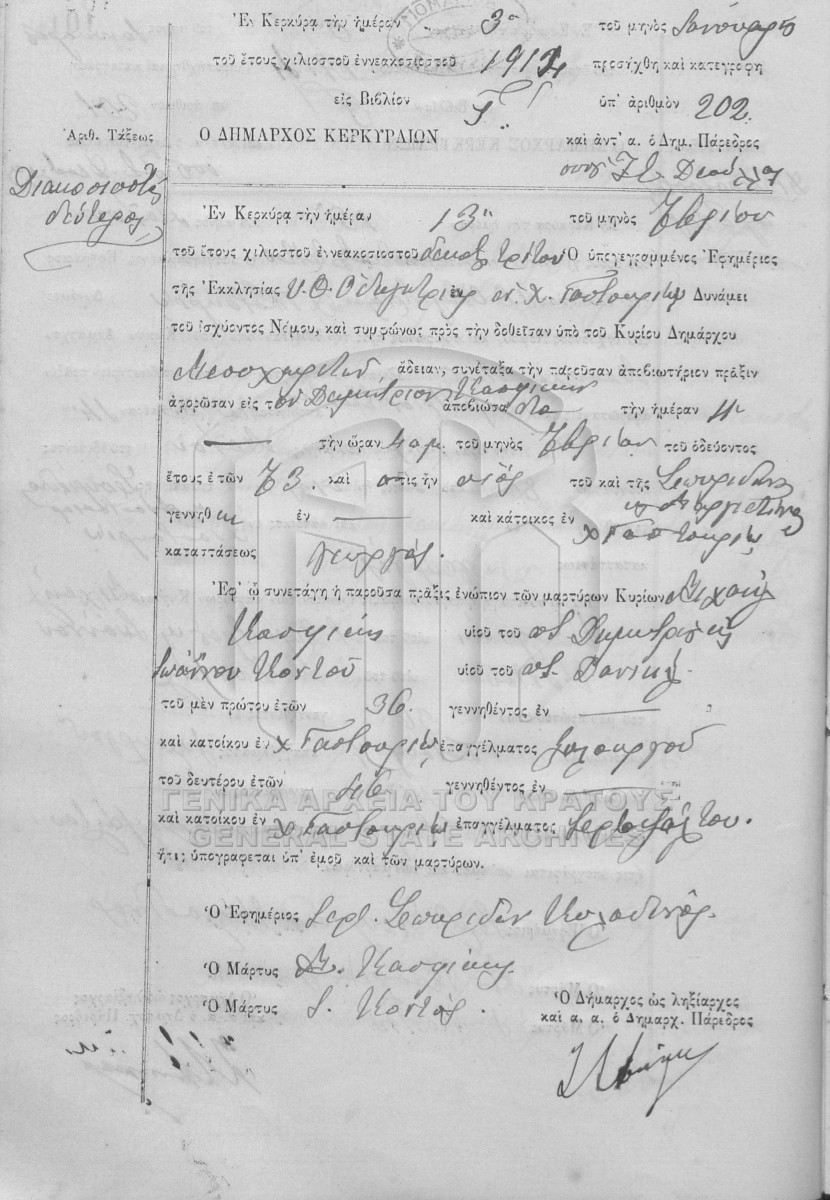 Ἐν Κερκύρᾳ τὴν ἡμέραν 3η τοῦ μηνὸς Ἰανουαρίου
τοῦ ἔτους χιλιοστοῦ ἐννεακοσιοστοῦ 1914 προσήχθη καὶ κατεγράφη
εἰς Βιβλίον Γ' ὑπ' ἀριθμὸν 202
Ἀριθ. Τάξεως
Ο ΔΗΜΑΡΧΟΣ ΚΕΡΚΥΡΑΙΩΝ καὶ ἀντ' α. ὁ Δημ. Πάρεδρος
Διακοσιοστὸς
δεύτερος
Ἐν Κερκύρᾳ τὴν ἡμέραν 13η τοῦ μηνὸς 7βρίου
τοῦ ἔτους χιλιοστοῦ ἐννεακοσιοστοῦ δεκάτ τρίτου Ὁ ὑπογεγραμμένος Ἐφημέριος
τῆς Ἐκκλησίας Υ.Θ. Ὁδηγητρίας ἐν χ. Γαστουρίῳ Δυνάμει
τοῦ ἰσχύοντος Νόμου, καὶ συμφώνως πρὸς τὴν δοθεῖσαν ὑπὸ τοῦ Κυρίου Δημάρχου
Μεσοχωριτῶν ἄδειαν, συνέταξα τὴν παροῦσαν ἀποβιωτήριον πρᾶξιν
ἀφορῶσαν εἰς τὸν Δημήτριον ἀποβιώσαντα τὴν ἡμέραν 11η
— τὴν ὥραν 4 π.μ. τοῦ μηνὸς 7βρίου τοῦ ὁδεύοντος
ἔτους ἐτῶν 73 καὶ ὅστις ἦν υἱὸς τοῦ καὶ τῆς Σπυρίδωνος
γεννηθεὶς ἐν — καὶ κάτοικος ἐν χ Γαστουρίῳ
καταστάσεως γεωργός.
Ἐφ' ᾧ συνετάγη ἡ παροῦσα πρᾶξις ἐνώπιον τῶν μαρτύρων Κυρίων Μιχαὴλ
υἱοῦ τοῦ ποτ. Δημητρίου
Ἰωάννου Κοντοῦ υἱοῦ τοῦ ποτ.
τοῦ μὲν πρώτου ἐτῶν 36. γεννηθέντος ἐν —
καὶ κατοίκου ἐν χ Γαστουρίῳ ἐπαγγέλματος ξυλουργοῦ
τοῦ δευτέρου ἐτῶν 46 γεννηθέντος ἐν —
καὶ κατοίκου ἐν χ Γαστουρίῳ ἐπαγγέλματος
ἥτις ὑπογράφεται ὑπ' ἐμοῦ καὶ τῶν μαρτύρων.
ΓΕΝΙΚΑ ΑΡΧΕΙΑ ΤΟΥ ΚΡΑΤΟΥΣ
GENERAL STATE ARCHIVES
Ὁ Ἐφημέριος Ἱερ. Σπυρίδων
Ὁ Μάρτυς Μ.
Ὁ Μάρτυς Ι. Κοντός.
Ὁ Δήμαρχος ὡς ληξίαρχος
καὶ α. α. ὁ Δημαρχ. Πάρεδρος